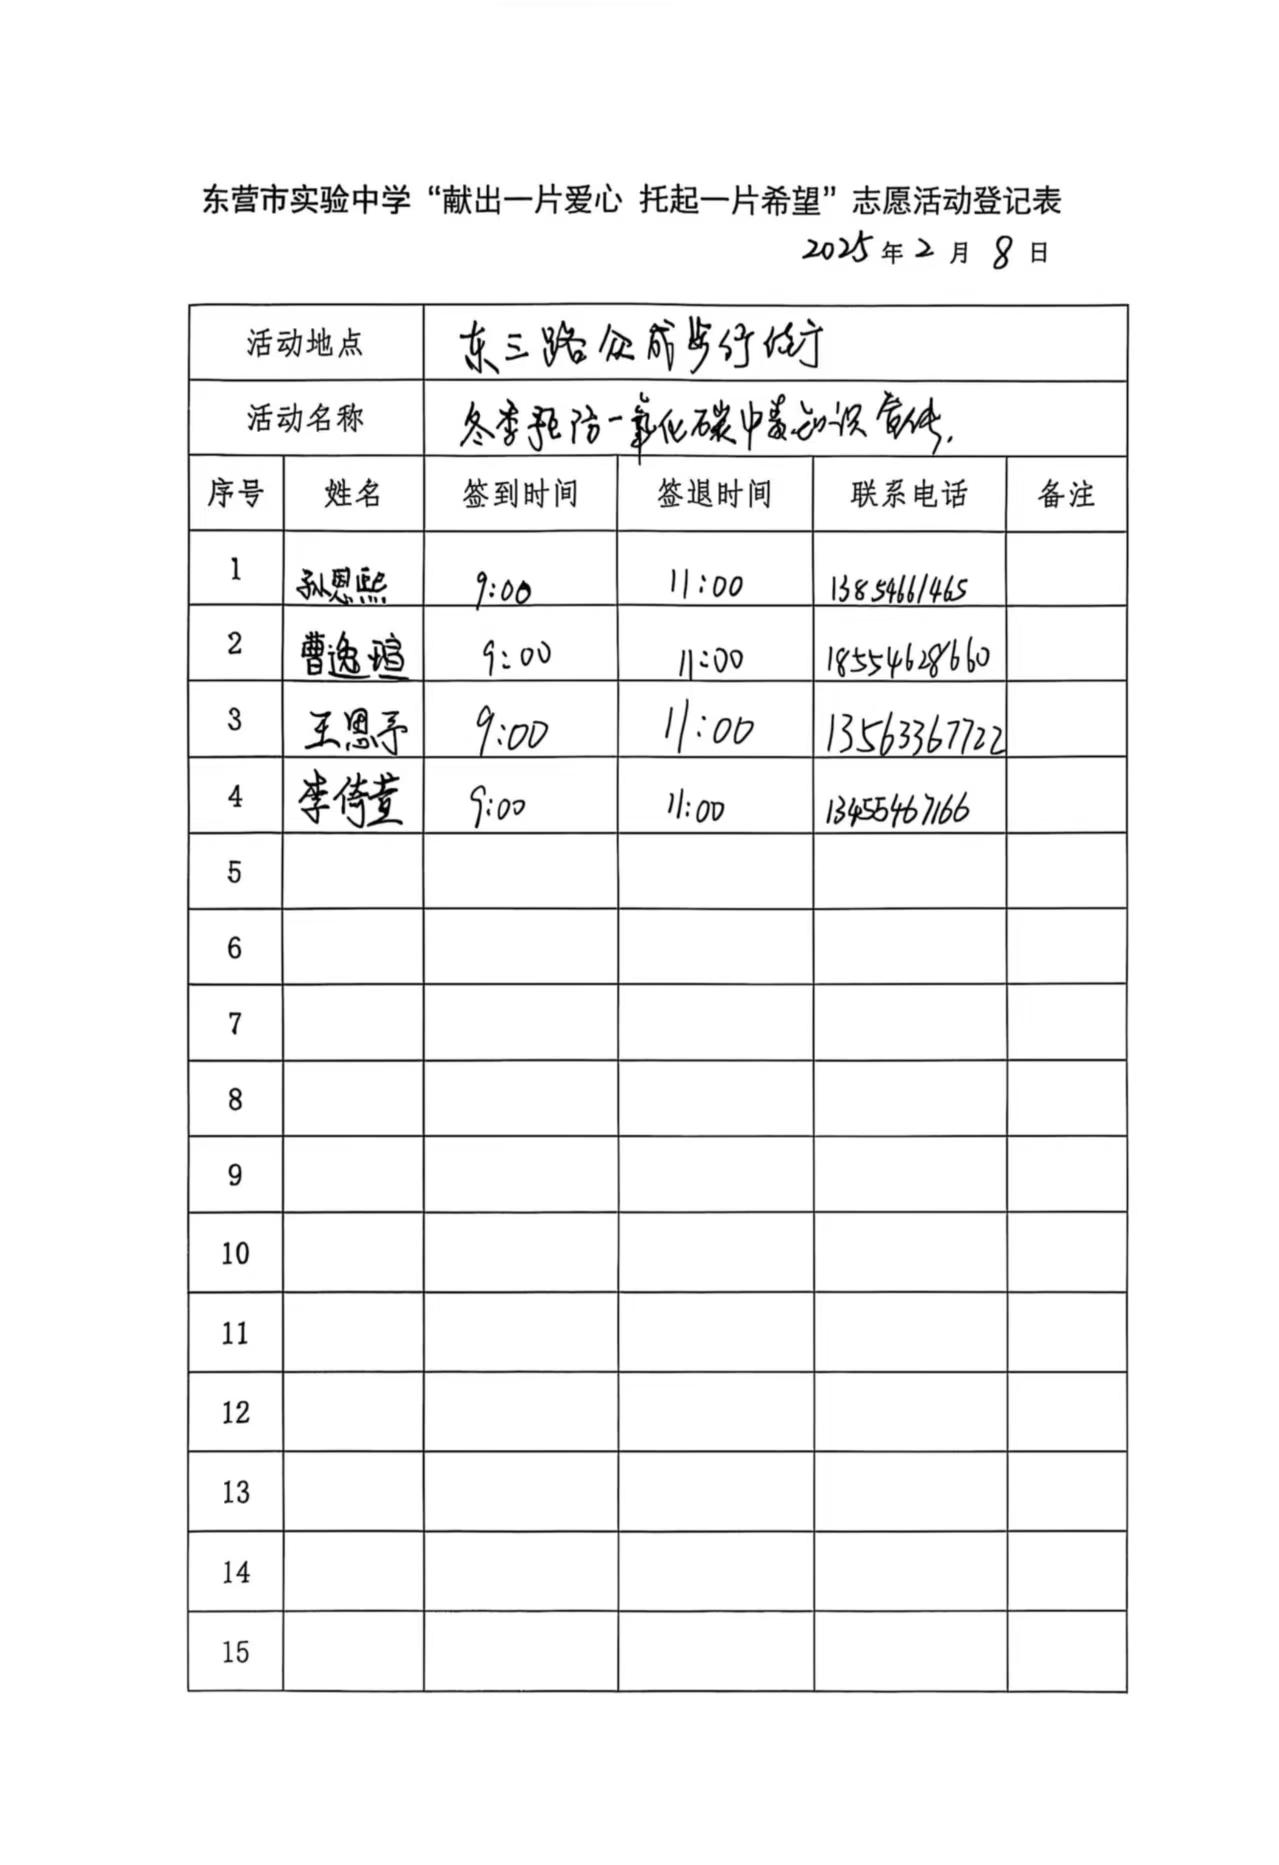 东营市实验中学“献出一片爱心 托起一片希望”志愿活动登记表
2025年2月8日
活动地点 东三路众成步行街
活动名称 冬季预防一氧化碳中毒知识宣传.
序号 姓名 签到时间 签退时间 联系电话 备注
1 孙恩熙 9:00 11:00 13854661465
2 曹逸瑄 9:00 11:00 18554628660
3 王恩予 9:00 11:00 13563367722
4 李倚萱 9:00 11:00 13455467166
5
6
7
8
9
10
11
12
13
14
15